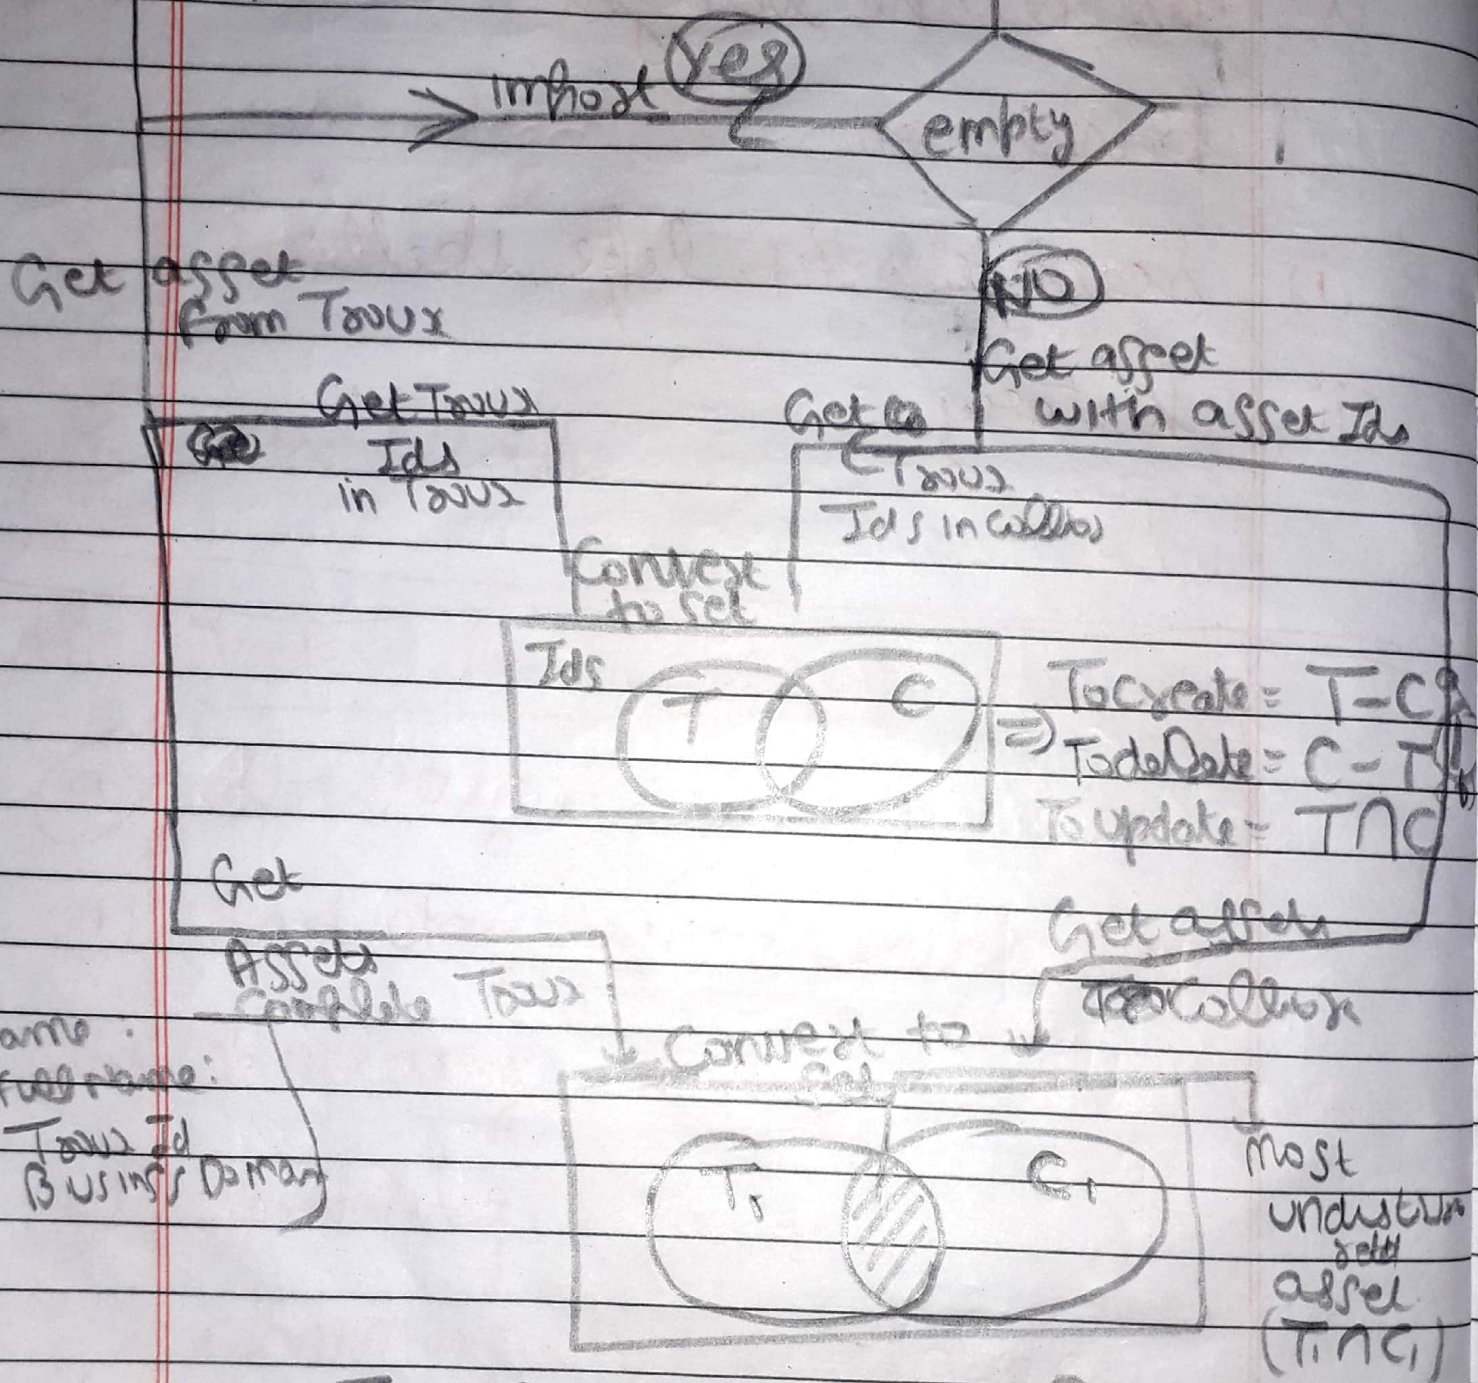 Yes
import
empty
NO
Get asset
from Troux
Get asset
with asset Ids
Get Troux
Ids
in Troux
Get
Troux
Ids in Collibra
Convert
to set
Ids
T
C
=> To Create = T-C
To delete = C-T
To update = T∩C
Get
Assets
Complete Troux
Get assets
Collibra
Convert to
Set
ame :
Full Name:
Troux Id
Business Domain
T₁
C₁
Most
asset
(T₁∩C₁)